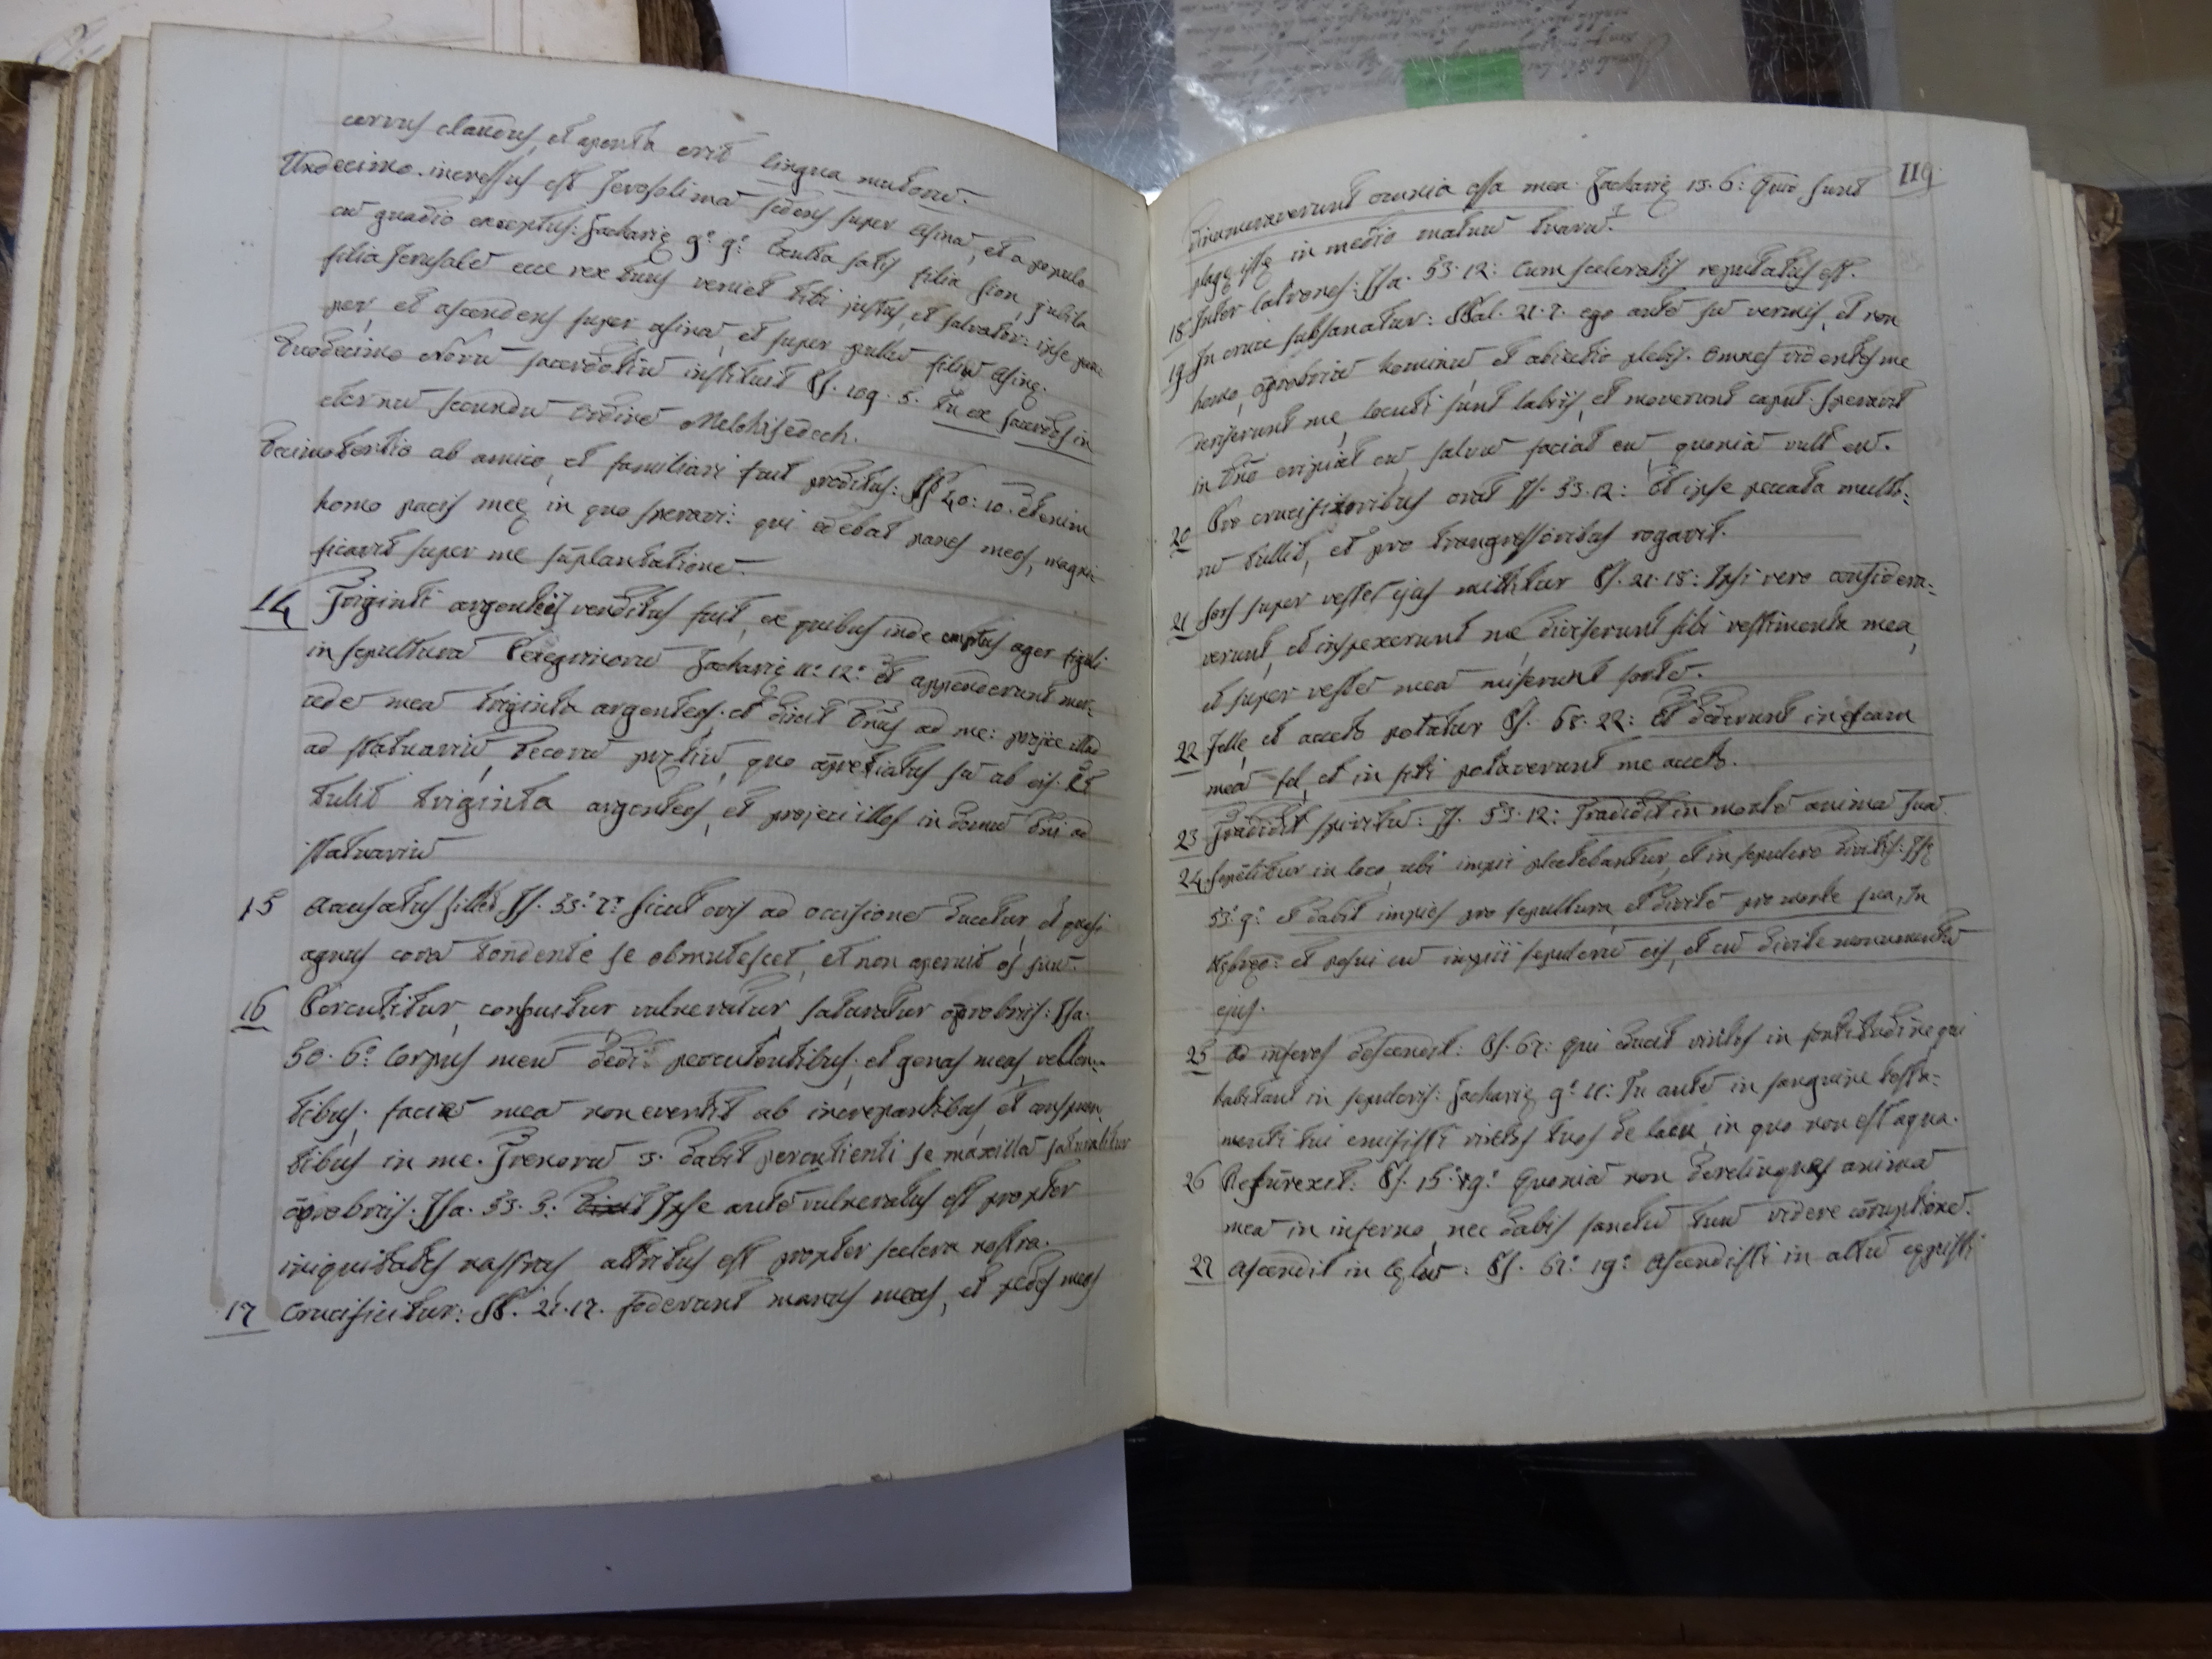 cervus claudus, et aperta erit lingua mutorū.
Undecimo. incressus est Jerosolimā sedens super asinā, et a populo
cū guadio exceptus: Zacharię 9º. 9º. Exulta satis filia Sion, jubila
filia Jerusalē ecce rex tuus veniet tibi justus, et salvator: ipse pau
per, et ascendens super asinā, et super pullū filiū asinę.
Duodecimo Novū sacerdotiū instituit Ps. 109. 5. tu es sacerdos in
eternū secundū ordinē Melchisedech.
Decimotertio ab amico, et familiari fuit proditus: Ps 40: 10. Etenim
homo pacis meę in quo speravi: qui edebat panes meos, magni-
ficavit super me suplantationē.
14 Triginti argenteis venditus fuit, ex quibus inde emptus ager figuli
in sepulturā Peregrinorū Zacharię 11º. 12º. Et appenderunt mer-
cedē meā triginta argenteos. et dixit Dnus ad me: projice illud
ad statuariū, decorū prętiū, quo apretiatus sū ab eis. Et
tulit triginta argenteos, et projeci illos in domū Dni ad
statuariū
15 Accusatus sillet Is. 53º. 7º: sicut ovis ad occisionē ducetur, et quasi
agnus corā tondente se obmutescet, et non aperuit os suū.
16 Percutitur, conspuitur, vulneratur, saturatur oprobriis: Isa.
50. 6º. Corpus meū dedi percutentibus, et genas meas vellen-
tibus. faciē meā non evertit ab increpantibus, et conspuen
tibus in me. Trenorū 3. dabit percutienti se maxillā saturabitur
oprobriis. Isa. 53. 5: Dixit Ipse autē vulneratus est propter
iniquitates nostras, attritus est propter scelera nostra.
17 Crucificitur: Ps. 21. 17. foderunt manus meas, et pedes meos
119.
dinumeraverunt omnia ossa mea. Zacharię 13. 6: Quę sunt
plagę istę in medio manuū tuarū.
18 Inter latrones: Isa. 53. 12: Cum sceleratis reputatus est.
19 In cruce subsanatur: Psal. 21. 7. ego autē sū vermis, et non
homo, oprobriū hominū et abiectio plebis. Omnes videntes me
deriserunt me, locuti sunt labiis, et moverunt caput. Speravit
in Dno eripiat eū, salvū faciat eū, quoniā vult eū.
20 Pro crucifixoribus orat Is. 53. 12: Et ipse peccata multo-
rū tullit, et pro trangressoribus rogavit.
21 Sors super vestes ejus mittitur Ps. 21. 18: Ipsi vero considera-
verunt, et inspexerunt me, diviserunt sibi vestimenta mea,
et super vestē meā miserunt sortē.
22 Felle, et aceto potatur Ps. 68. 22: Et dederunt in escam
meā fel, et in siti potaverunt me aceto.
23 Tradidit spiritū: Is. 53. 12: Tradidit in mortē animā suā
24. Sepelitur in loco, ubi impii plectebantur, et in sepulcro divitis: Isę
53º. 9º. et dabit impios pro sepultura, et divitē pro morte sua, In
Hębręo: et posui cū impiis sepulcrū eis, et cū divite monumentū
ejus.
25 Ad inferos descendit: Ps. 67: Qui educit vinctos in fortitudine qui
habitant in sepulcris: Zacharię 9º. 11: Tu autē in sanguine testa-
menti tui emisisti vinctos tuos de lacu, in quo non est aqua.
26 Resurexit: Ps. 15. 9º. Quoniā non derelinques animā
meā in inferno, nec dabis sanctū tuū videre corruptionē.
27 Ascendit in Cęlū: Ps. 67º. 19º. Ascendisti in altū cępisti